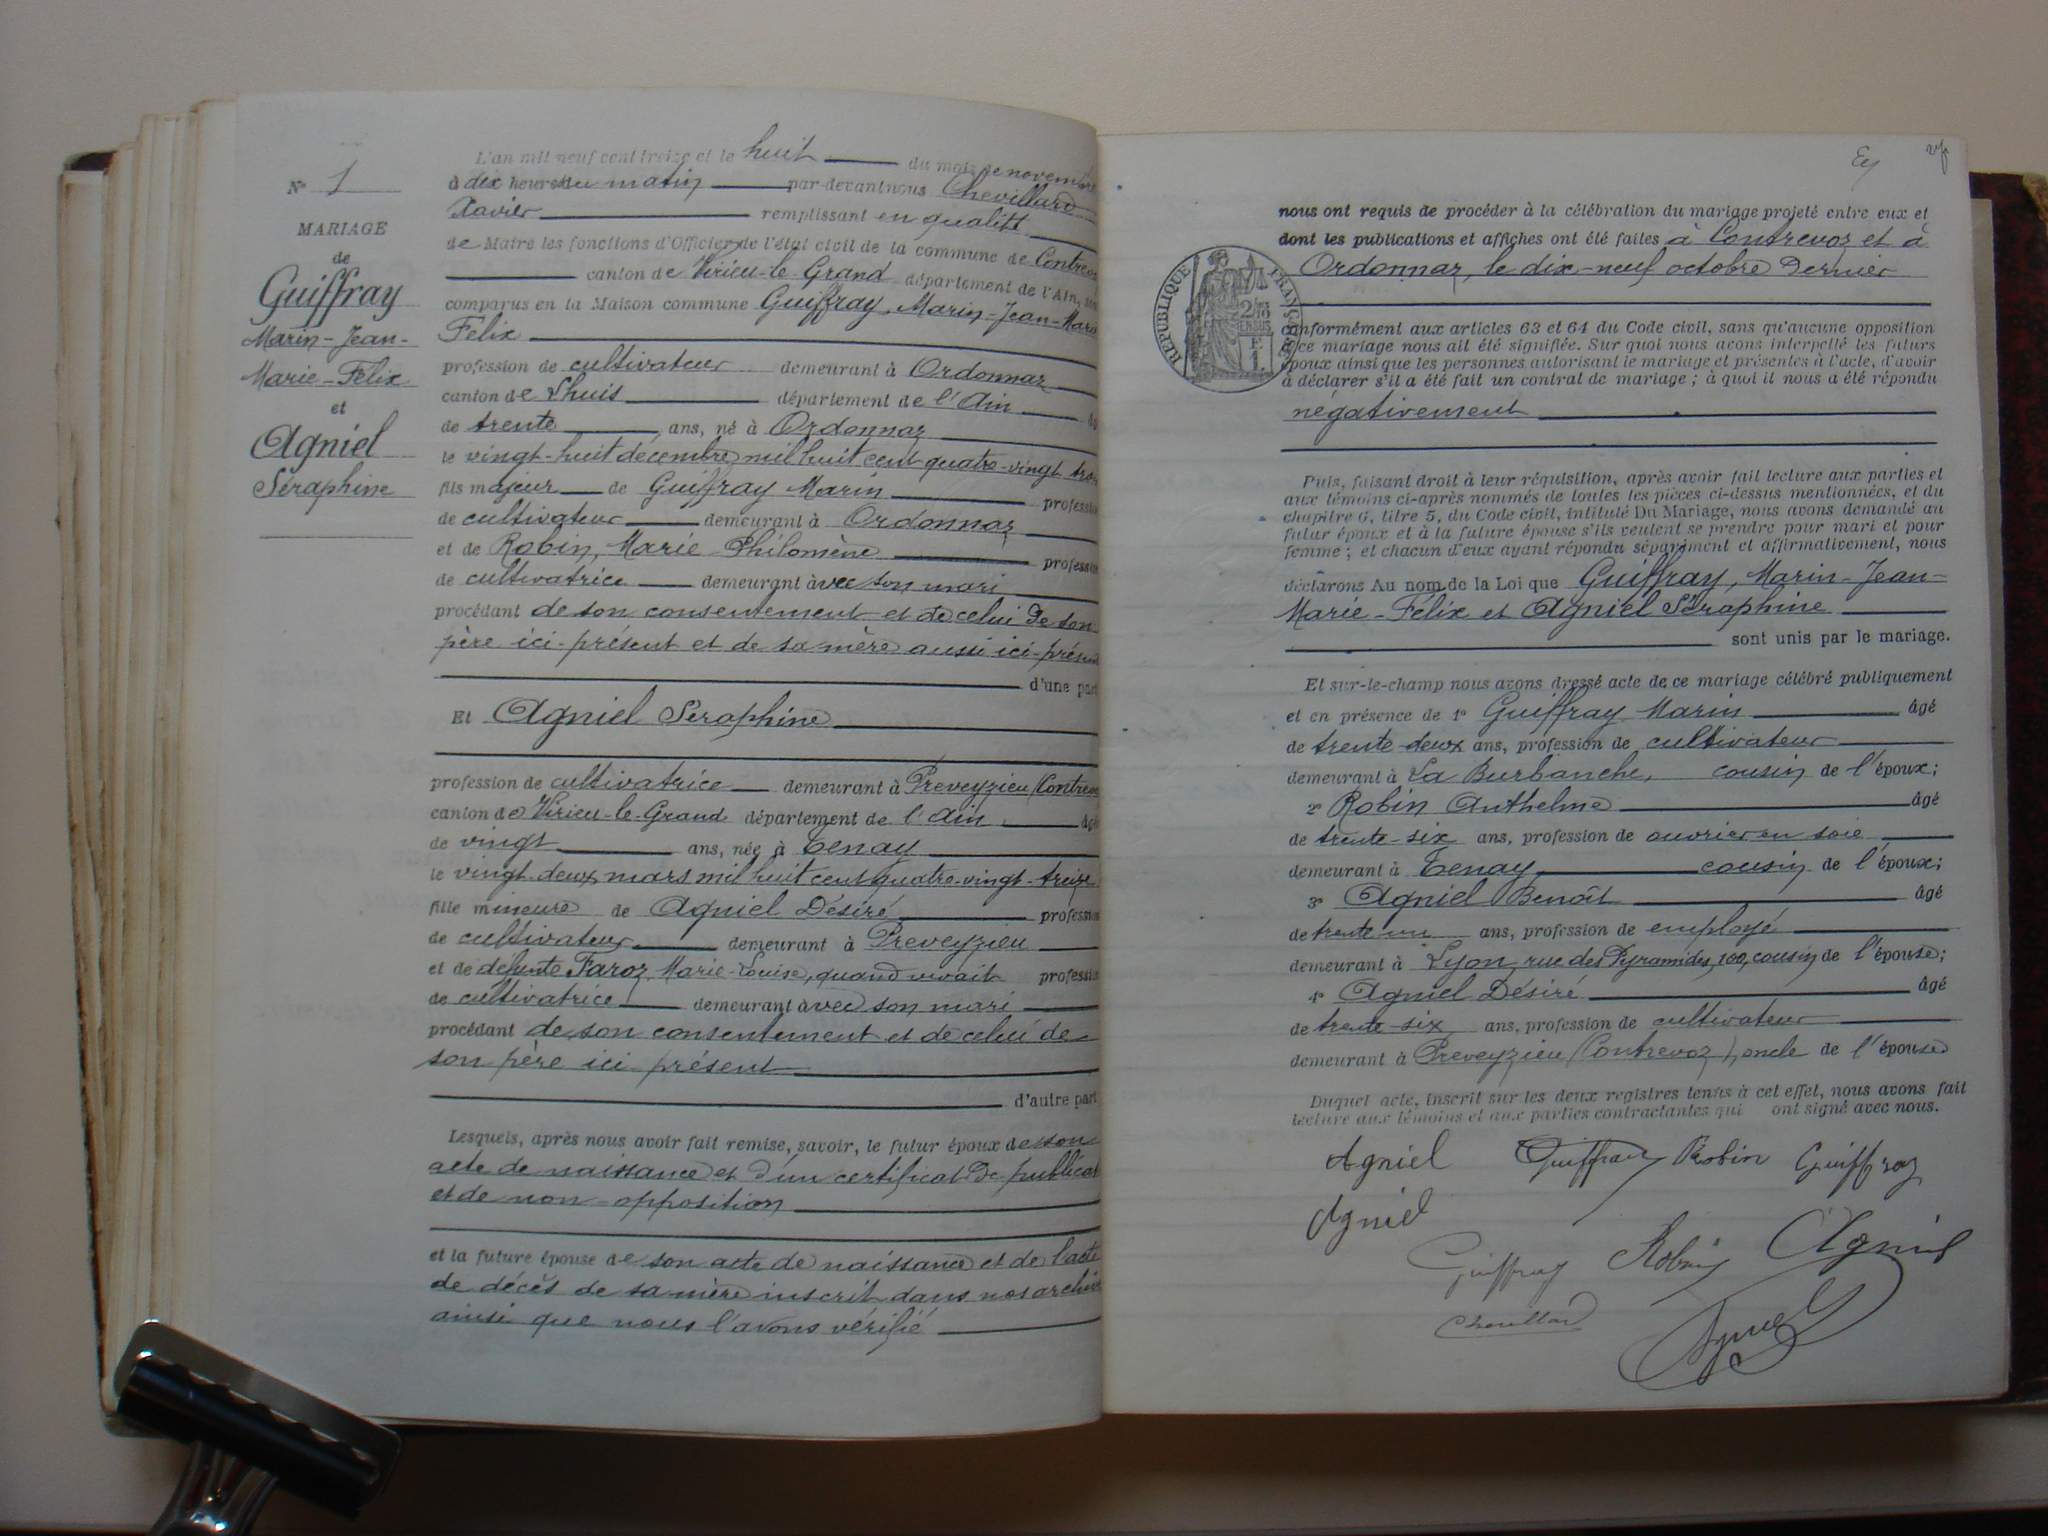 N° 1
MARIAGE
de
Guiffray
Marin-Jean-
Marie-Félix
et
Agniel
Séraphine
L'an mil neuf cent treize et le huit du mois de novembre
à dix heures du matin par-devant nous Chevillard
Xavier remplissant en qualité
de Maire les fonctions d'Officier de l'état civil de la commune de Contrevoz
canton de Virieu-le-Grand département de l'Ain, sont
comparus en la Maison commune Guiffray, Marin-Jean-Marie
Félix
profession de cultivateur demeurant à Ordonnaz
canton de Lhuis département de l'Ain âgé
de trente ans, né à Ordonnaz
le vingt-huit décembre mil huit cent quatre-vingt trois
fils majeur de Guiffray Marin profession
de cultivateur demeurant à Ordonnaz
et de Robin, Marie Philomène profession
de cultivatrice demeurant avec son mari
procédant de son consentement et de celui de son
père ici-présent et de sa mère aussi ici-présent
d'une part
Et Agniel Séraphine
profession de cultivatrice demeurant à Preveyzieu (Contrevoz
canton de Virieu-le-Grand département de l'Ain âgé
de vingt ans, née à Tenay
le vingt-deux mars mil huit cent quatre-vingt-treize
fille mineure de Agniel Désiré profession
de cultivateur demeurant à Preveyzieu
et de défunte Faroz, Marie-Louise, quand vivait profession
de cultivatrice demeurant avec son mari
procédant de son consentement et de celui de
son père ici présent
d'autre part
Lesquels, après nous avoir fait remise, savoir, le futur époux de son
acte de naissance et d'un certificat de publicat
et de non-opposition
et la future épouse de son acte de naissance et de l'acte
de décès de sa mère inscrit dans nos archives
ainsi que nous l'avons vérifié
nous ont requis de procéder à la célébration du mariage projeté entre eux et
dont les publications et affiches ont été faites à Contrevoz et à
Ordonnaz, le dix-neuf octobre dernier
RÉPUBLIQUE FRANÇAISE
conformément aux articles 63 et 64 du Code civil, sans qu'aucune opposition
à ce mariage nous ait été signifiée. Sur quoi nous avons interpellé les futurs
époux ainsi que les personnes autorisant le mariage et présentes à l'acte, d'avoir
à déclarer s'il a été fait un contrat de mariage ; à quoi il nous a été répondu
négativement
Puis, faisant droit à leur réquisition, après avoir fait lecture aux parties et
aux témoins ci-après nommés de toutes les pièces ci-dessus mentionnées, et du
chapitre 6, titre 5, du Code civil, intitulé Du Mariage, nous avons demandé au
futur époux et à la future épouse s'ils veulent se prendre pour mari et pour
femme ; et chacun d'eux ayant répondu séparément et affirmativement, nous
déclarons Au nom de la Loi que Guiffray, Marin-Jean-
Marie-Félix et Agniel Séraphine
sont unis par le mariage.
Et sur-le-champ nous avons dressé acte de ce mariage célébré publiquement
et en présence de 1° Guiffray Marin âgé
de trente-deux ans, profession de cultivateur
demeurant à La Burbanche, cousin de l'époux ;
2° Robin Anthelme âgé
de trente-six ans, profession de ouvrier en soie
demeurant à Tenay cousin de l'époux ;
3° Agniel Benoît âgé
de trente un ans, profession de employé
demeurant à Lyon, rue des Pyramides, 100, cousin de l'épouse ;
4° Agniel Désiré âgé
de trente-six ans, profession de cultivateur
demeurant à Preveyzieu (Contrevoz), oncle de l'épouse
Duquel acte, inscrit sur les deux registres tenus à cet effet, nous avons fait
lecture aux témoins et aux parties contractantes qui ont signé avec nous.
Agniel Guiffray Robin Guiffray
Agniel
Guiffray Robin Agniel
Chevillard